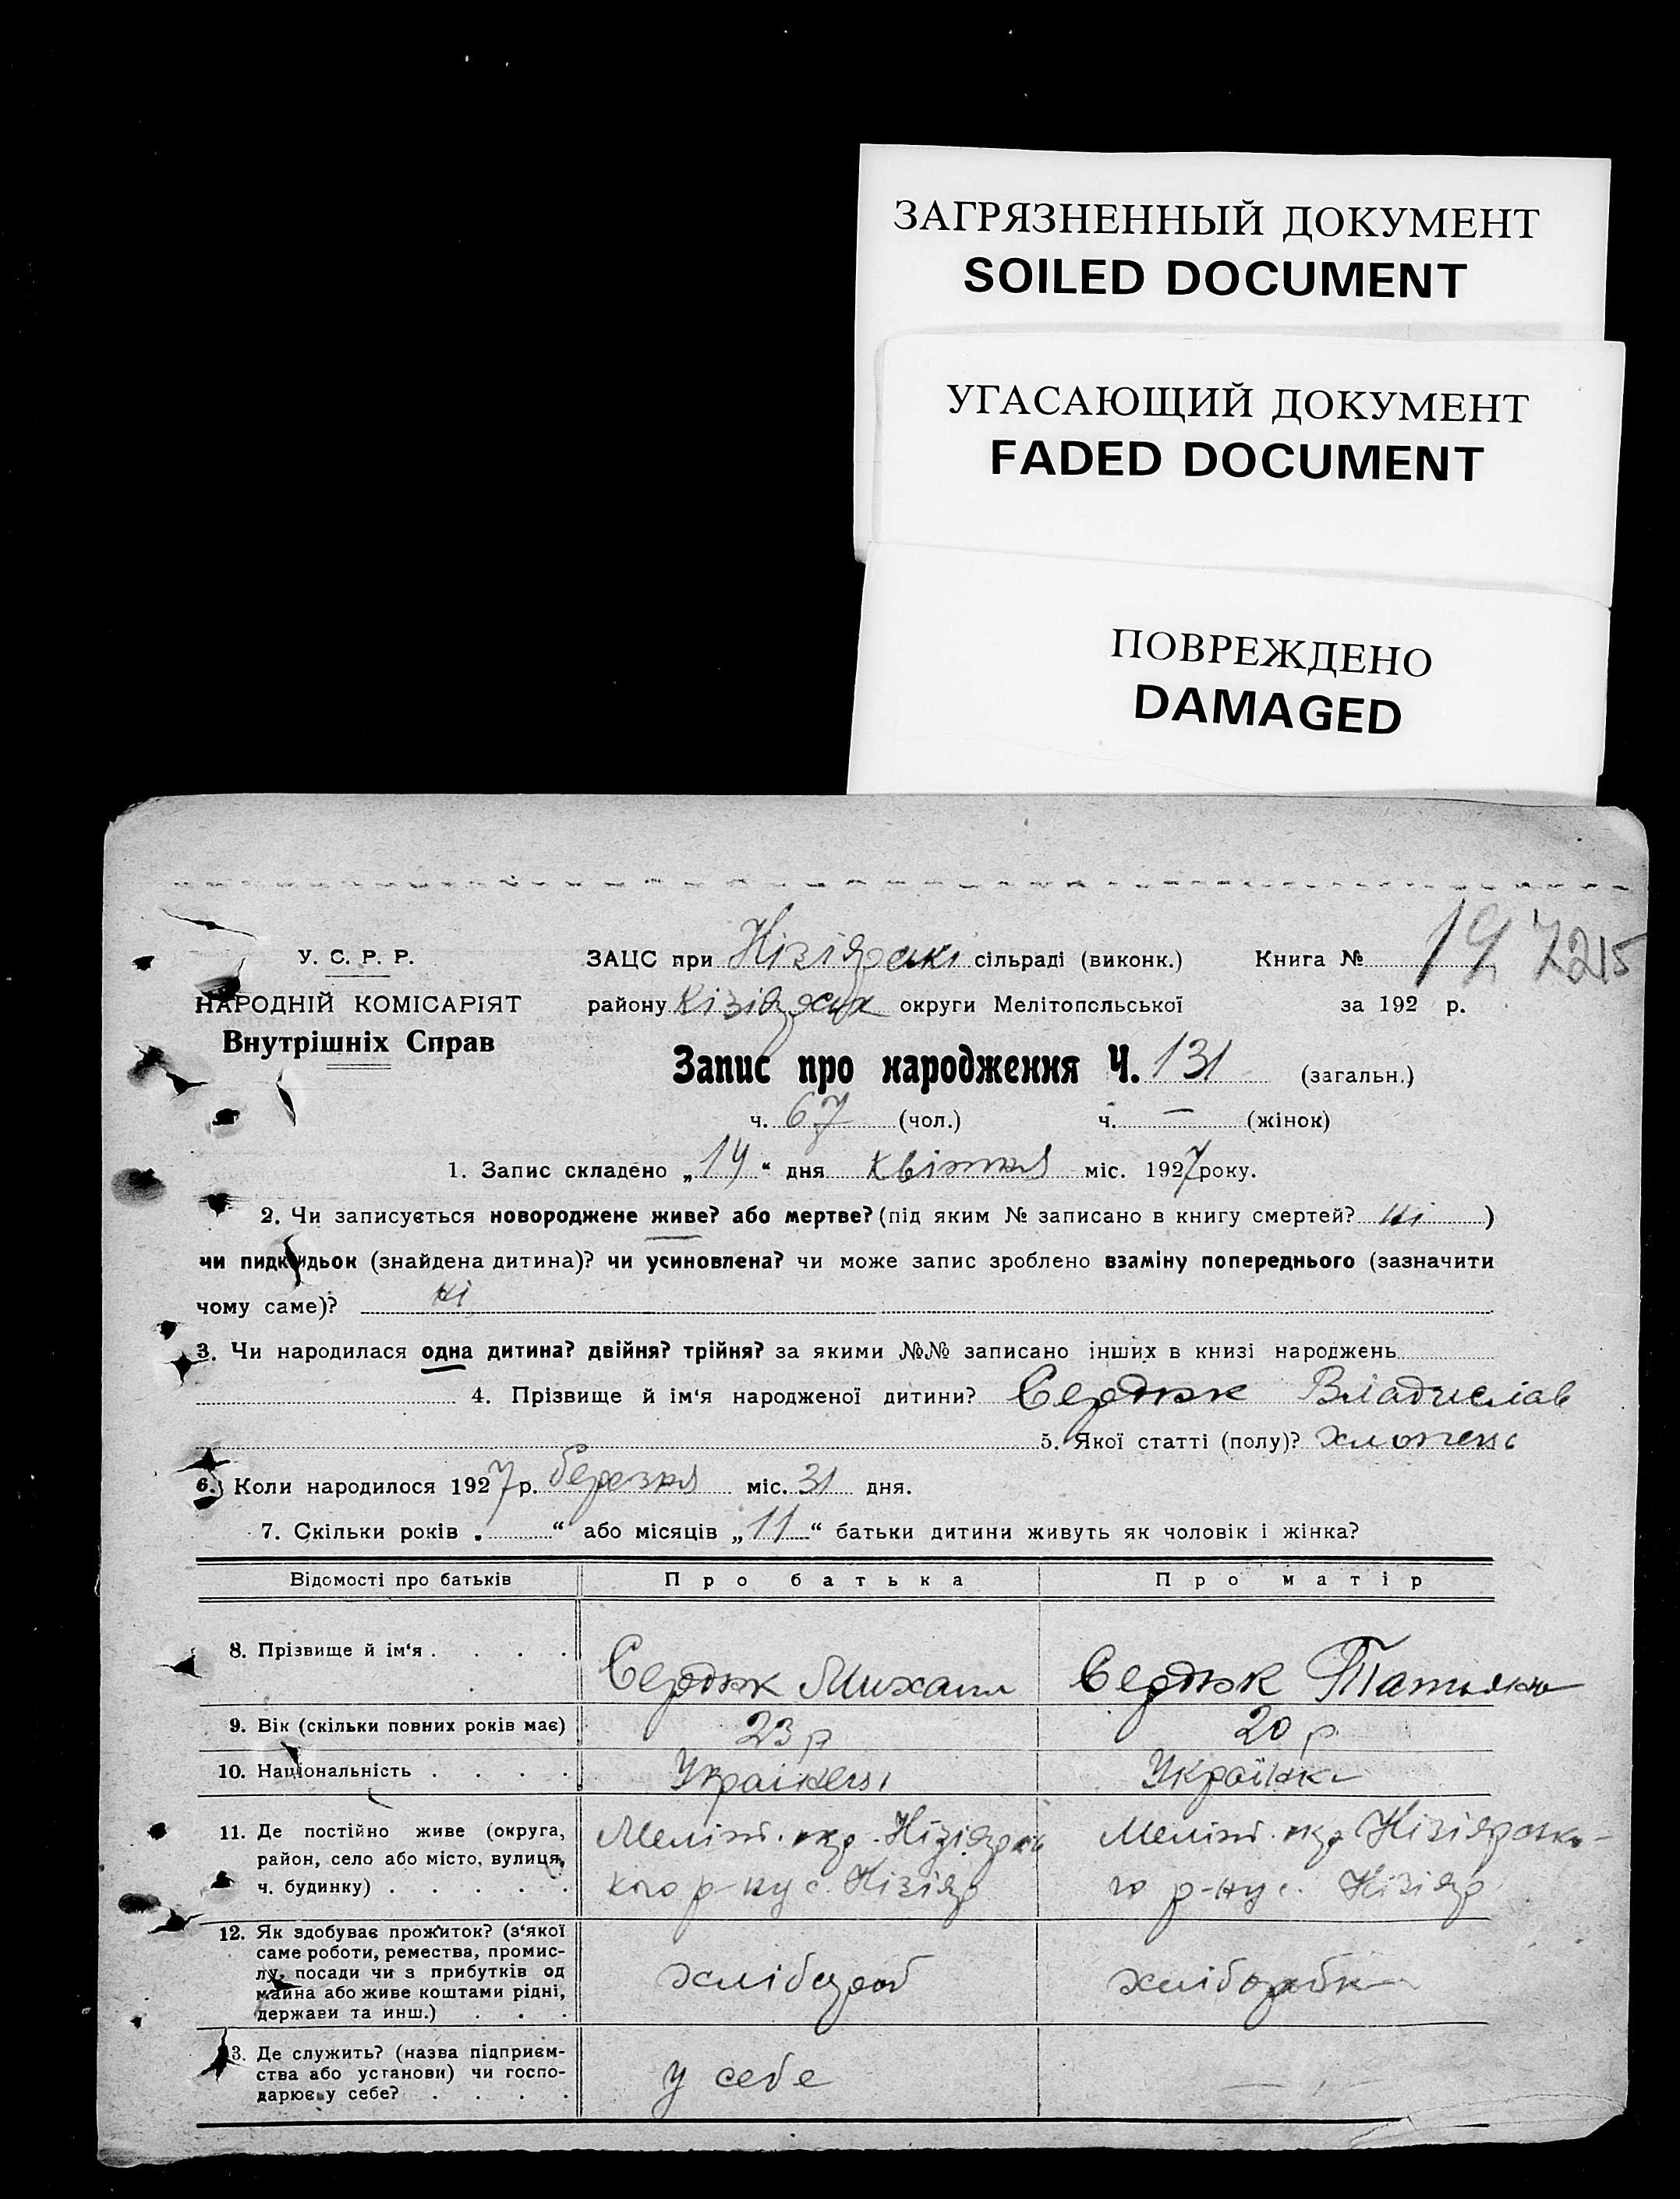 ЗАГРЯЗНЕННЫЙ ДОКУМЕНТ
SOILED DOCUMENT
УГАСАЮЩИЙ ДОКУМЕНТ
FADED DOCUMENT
ПОВРЕЖДЕНО
DAMAGED
У. С. Р. Р.
НАРОДНІЙ КОМІСАРІЯТ
Внутрішніх Справ
ЗАЦС при Кізіярські сільраді (виконк.) Книга №
району округи Мелітопольської за 192 р.
Запис про народження Ч. 131 (загальн.)
ч. 67 (чол.) ч. — (жінок)
1. Запис складено „14“ дня квітня міс. 1927 року.
2. Чи записується новороджене живе? або мертве? (під яким № записано в книгу смертей? ні )
чи пидкидьок (знайдена дитина)? чи усиновлена? чи може запис зроблено взаміну попереднього (зазначити
чому саме)? ні
3. Чи народилася одна дитина? двійня? трійня? за якими №№ записано інших в книзі народжень
4. Прізвище й ім‘я народженої дитини? Сердюк Владислав
5. Якої статті (полу)? хлопець
6. Коли народилося 1927 р. березня міс. 31 дня.
7. Скільки років „ “ або місяців „11“ батьки дитини живуть як чоловік і жінка?
Відомості про батьків Про батька Про матір
8. Прізвище й ім‘я . . . . Сердюк Михаил Сердюк Татьяна
9. Вік (скільки повних років має) 23 р 20 р
10. Національність . . . . Українець Українка
11. Де постійно живе (округа,
район, село або місто, вулиця,
ч. будинку) . . . . .
Меліт. окр. Кізіярсь
кого р-ну с. Кізіяр
Меліт. окр Кізіярсько-
го р-ну с. Кізіяр
12. Як здобуває прожиток? (з‘якої
саме роботи, ремества, промис-
лу, посади чи з прибутків од
майна або живе коштами рідні,
держави та инш.) . . .
хлібороб хліборобка
13. Де служить? (назва підприєм-
ства або установи) чи госпо-
дарює у себе? . . . .
у себе